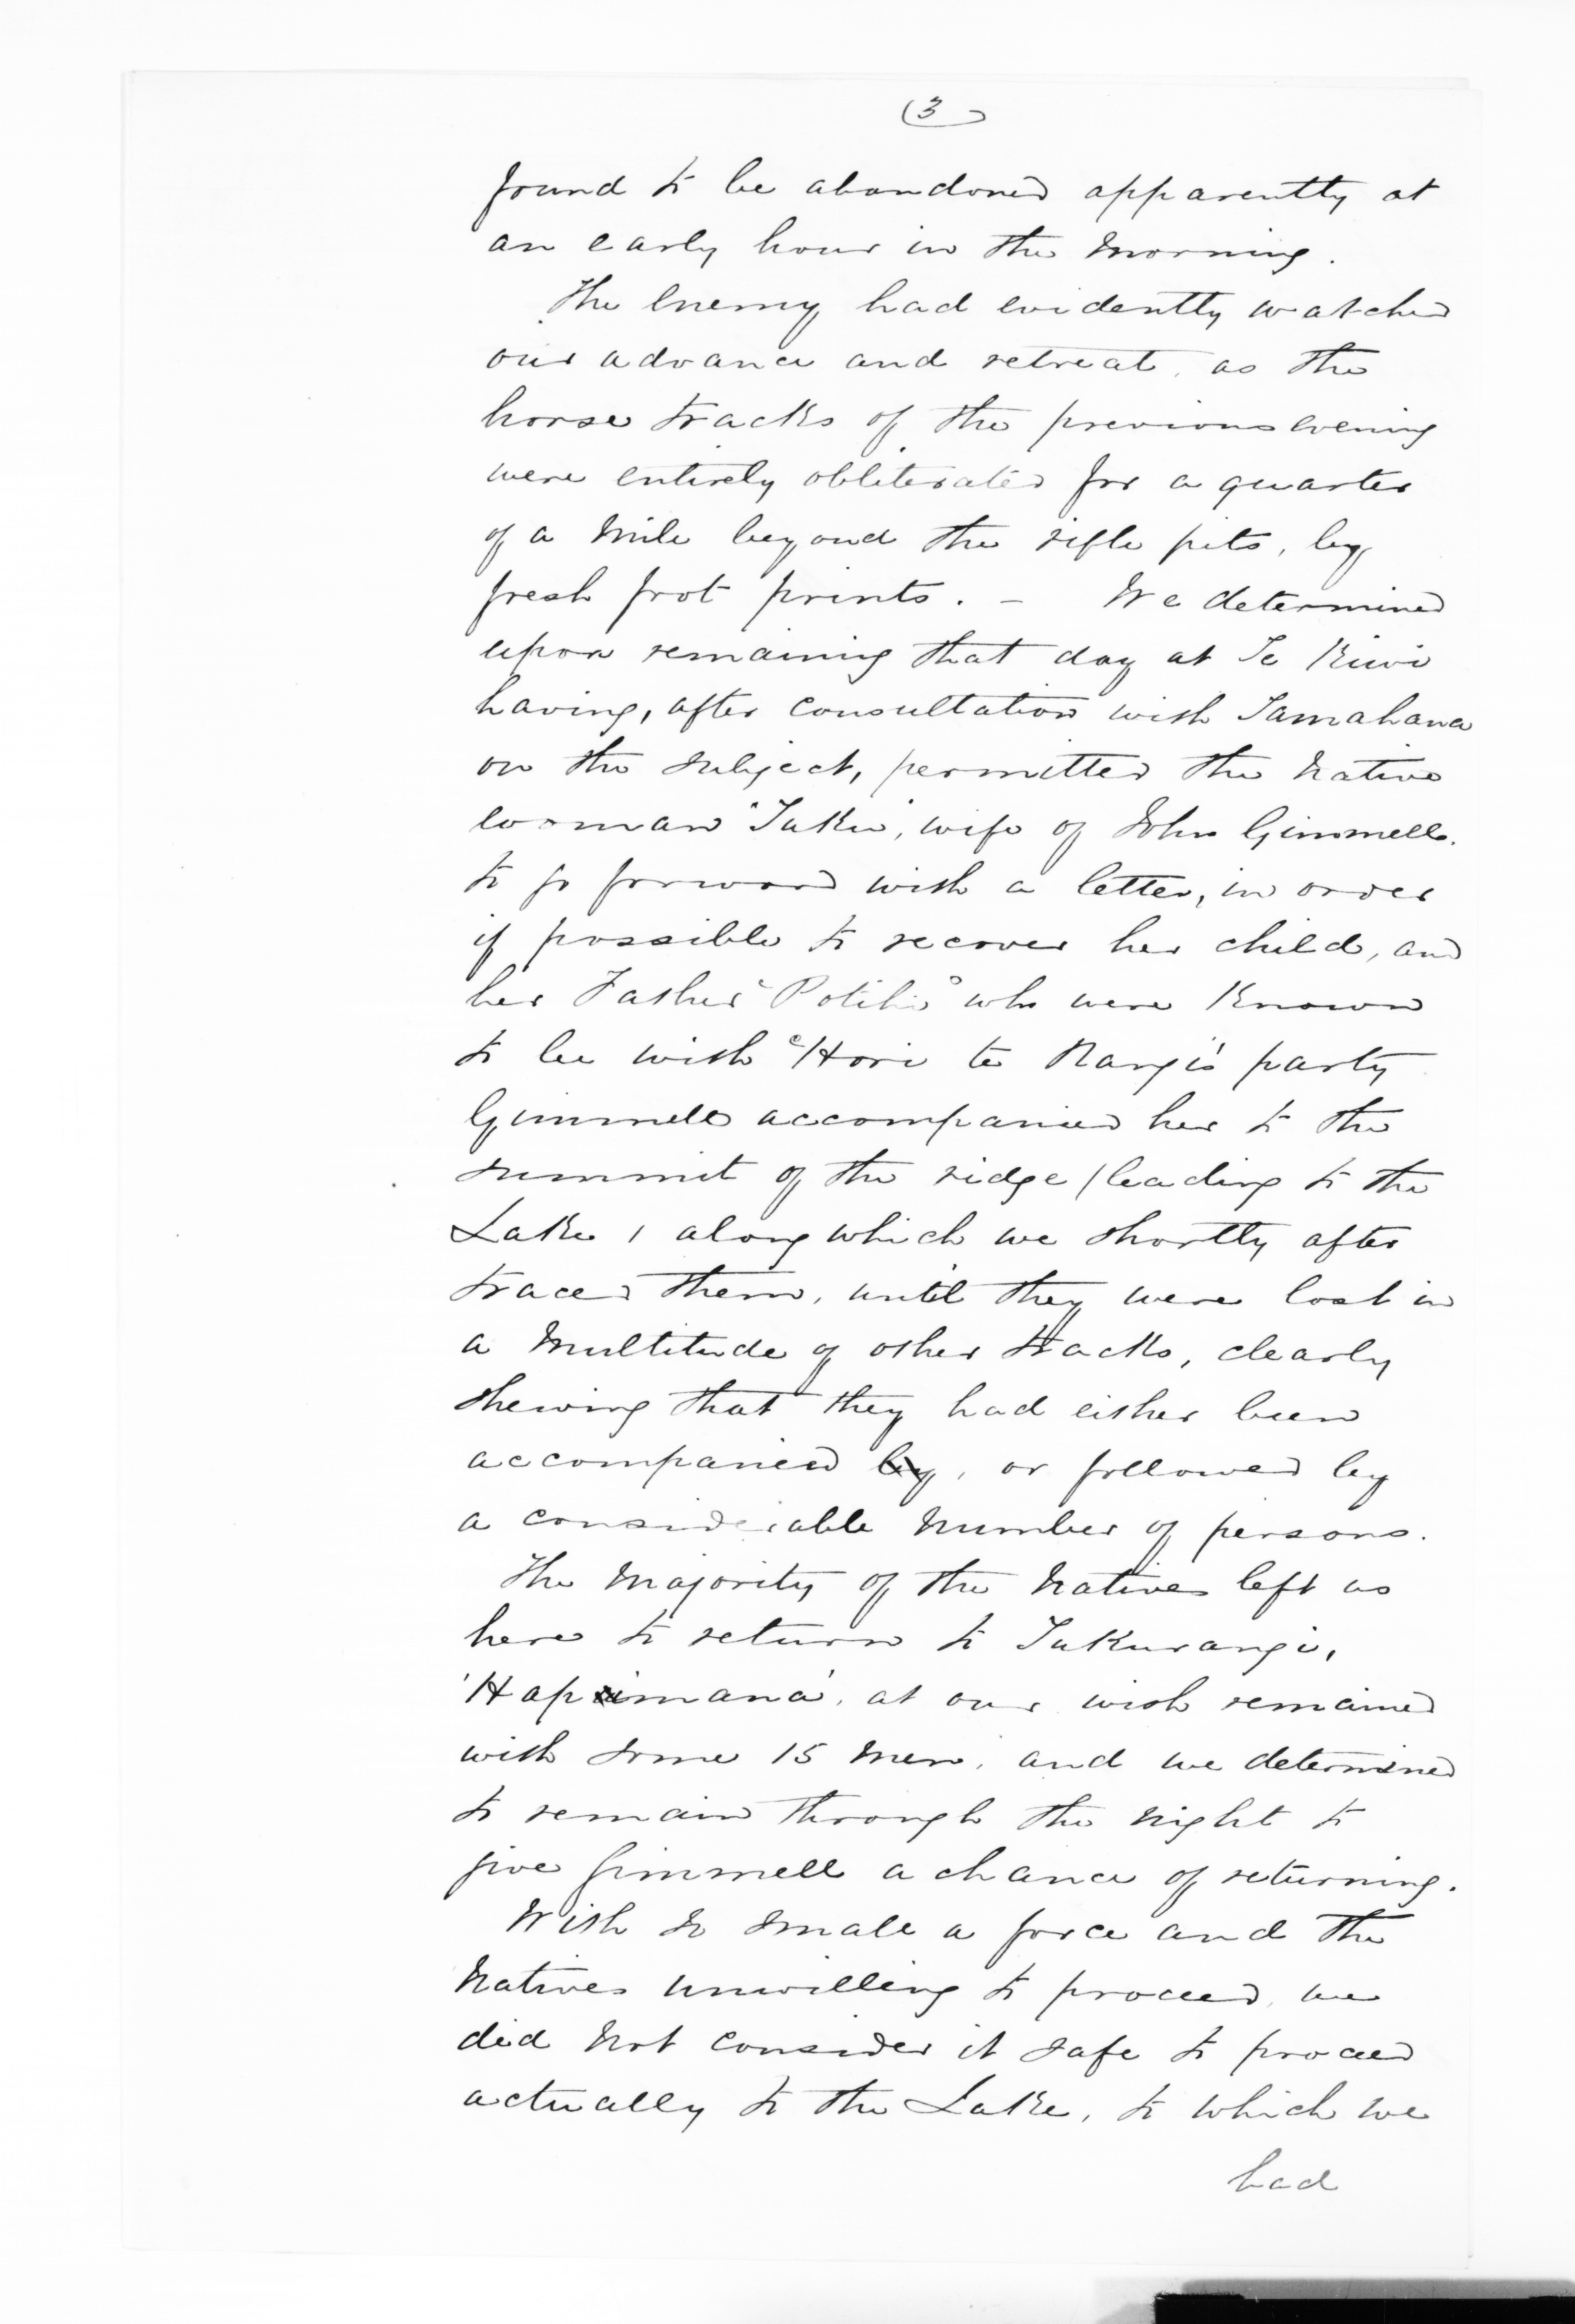 (3)
found to be abandoned apparently at
an early hour in the morning.
The Enemy had evidently watched
our advance and retreat, as the
horse tracks of the previous evening
were entirely obliterated for a quarter
of a mile beyond the rifle pits, by
fresh foot prints. - We determined
upon remaining that day at Te Kiwi
having, after consultation with Tamahana
on the subject, permitted the Native
woman 'Taku', wife of John Gimmell.
to go forward with a letter, in order
if possible to recover her child, and
her Father "Potihi" who were known
to be with "Hori te Rangi's party
Gimmell accompanied her to the
summit of the ridge (leading to the
Lake) along which we shortly after
traced them, until they were lost in
a multitude of other tracks, clearly
shewing that they had either been
accompanied by, or followed by
a considerable number of persons.
The Majority of the Natives left us
here to return to Tukurangi,
'Hapimana', at our wish remained
with some 15 men, and we determined
to remain through the night to
give Gimmell a chance of returning.
With so small a force and the
Natives unwilling to proceed, we
did not consider it safe to proceed
actually to the Lake, to which we
had